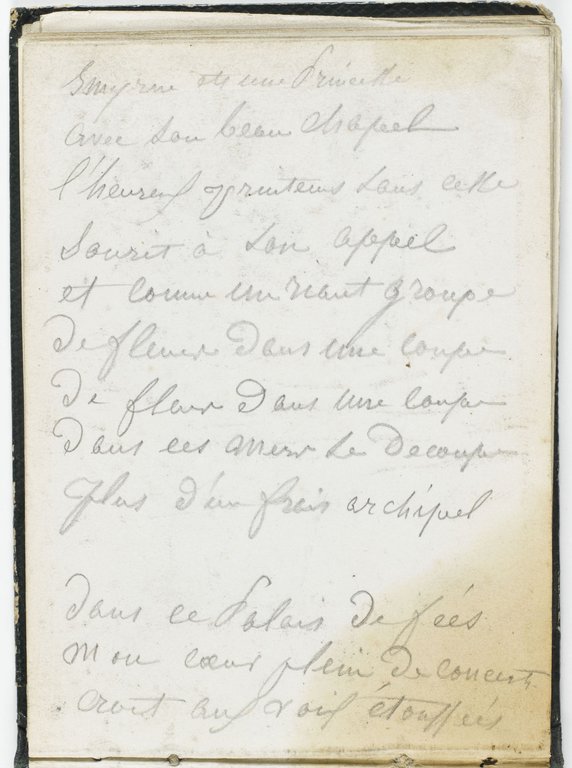 Smyrne est une Princesse
avec son beau chapel
l'heureux printems sans cesse
Sourit à son appel
et comme un riant groupe
De fleurs dans une coupe
De fleurs dans une coupe
Dans ces mers se Decoupe
plus d'un frais archipel
Dans ce Palais De fées
Mon cœur plein De concerts
croit aux voix étouffées